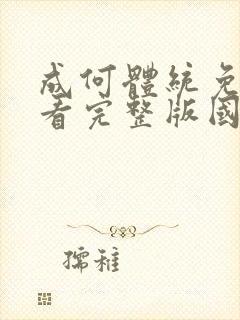 成何體統免
看完整版國
孺稚